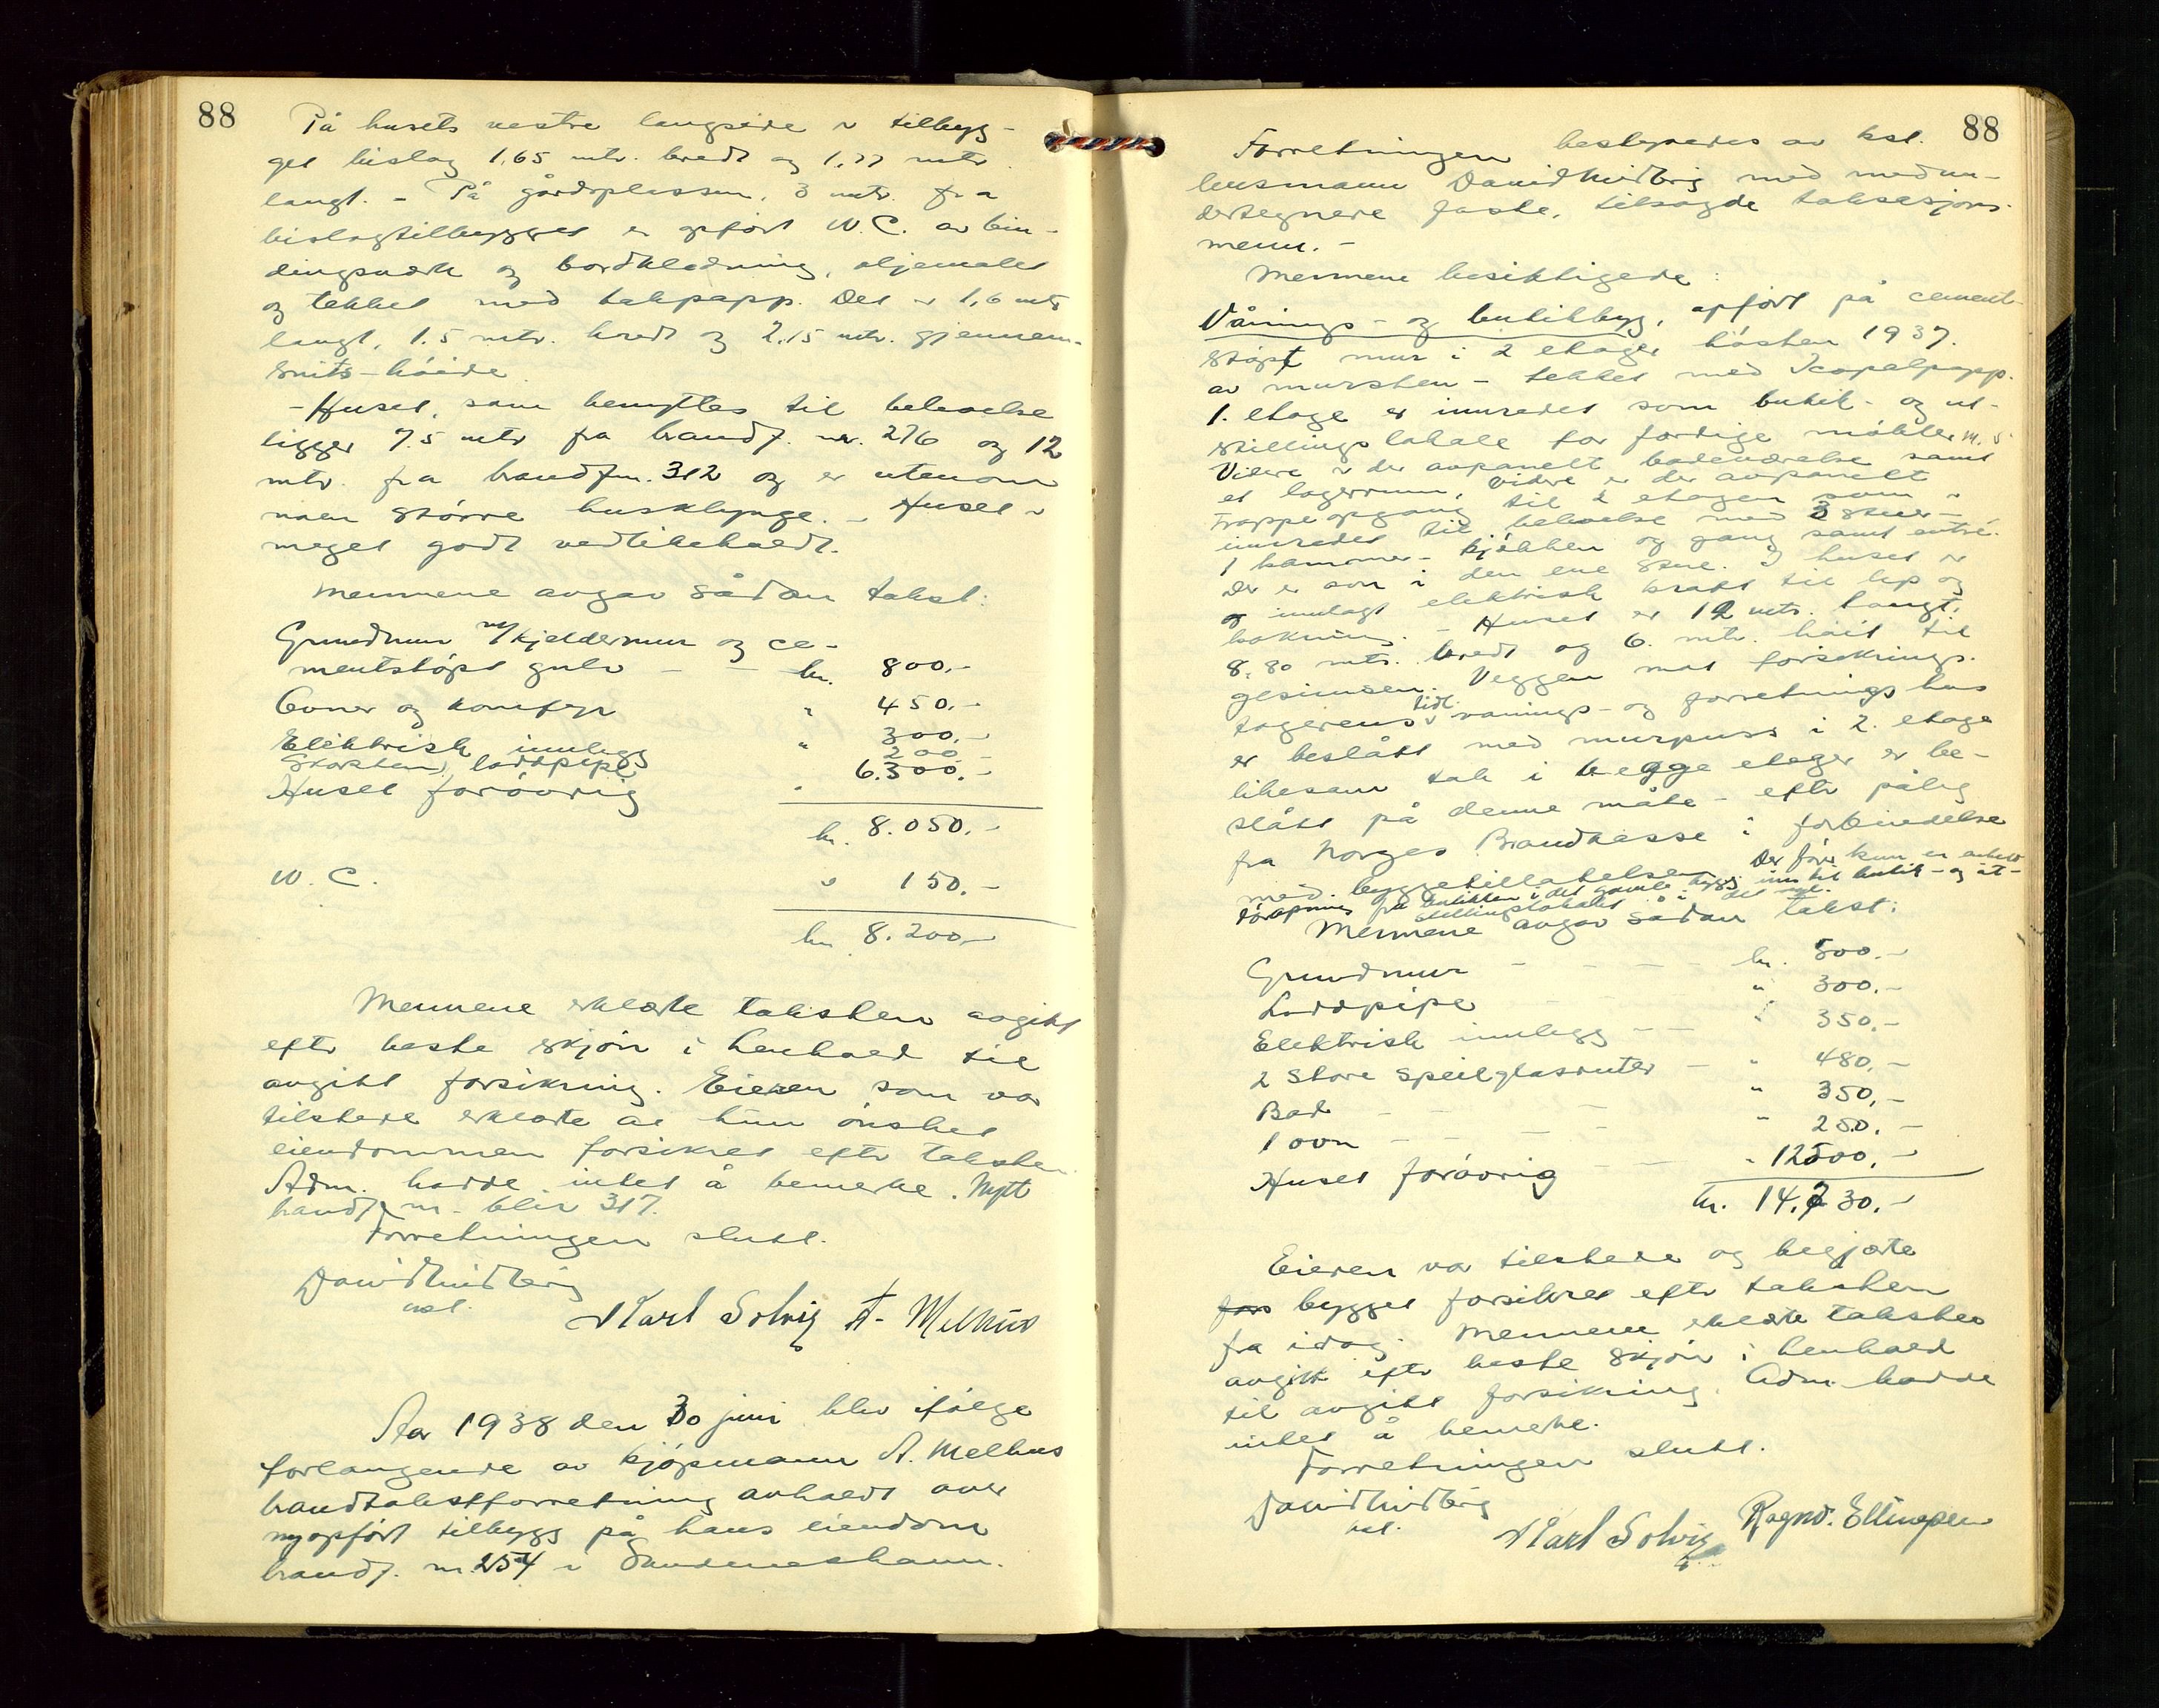 88
På husets vestre langside er tilbyg-
get bislag 1,65 mtr. bredt og 1,77 mtr.
langt. - På gårdsplassen, 3 mtr. fra
bislagtilbygget er opført W.C. av bin-
dingsverk og bordklædning, oljemalet
og tekket med takpapp. Det er 1,6 mtr
langt, 1.5 mtr. bredt og 2,15 mtr. gjennem-
snits-høide.
- Huset, som benyttes til beboelse
ligger 7.5 mtr fra brandf. nr. 276 og 12
mtr. fra brandf.nr. 312 og er utenom
noen større husklynge. - Huset er
meget godt vedlikeholdt.
Mennene avgav sådan takst:
Grundmur m/kjeldermur og ce-
mentstøpt gulv - - kr. 800.-
Ovner og komfyr " 450.-
Elektrisk innlegg " 300.-
Skorsten, loddpipe 200.-
Huset forøvrig " 6.300.-
kr. 8.050.-
W.C. " 150.-
kr. 8.200.-
Mennene erklærte taksten avgitt
efter beste skjøn i henhold til
avgitt forsikring. Eieren som var
tilstede erklærte at hun ønsket
eiendommen forsikret efter taksten.
Adm. hadde intet å bemerke. Nytt
brandf. nr. blir 317.
Forretningen slutt.
David Hvidberg
kst.
Karl Solvig A. Melhus
Aar 1938 den 30 juni blev ifølge
forlangende av kjøpmann A. Melhus
brandtakstforretning avholdt over
nyopført tilbygg på hans eiendom
brandf. nr. 254 i Sandneshavn.
88
Forretningen bestyredes av kst.
lensmann David Hvidberg med medun-
dertegnede faste, tilsagde taksasjons-
menn. -
Mennene besiktigede:
Vånings- og butikbygg, opført på cement-
støpt mur i 2 etager høsten 1937.
av mursten - tekket med Icopalpapp.
1. etage er innredet som butik- og ut-
stillingslokale for ferdige møbler m. v.
Videre er der avpanelt badeværelse samt
et lagerrum, videre er der avpanelt
trappeopgang til 2 etagen som er
innredet til beboelse med 3 stuer -
1 kammer - kjøkken og gang samt entré.
Der er ovn i den ene stue. I huset er
og innlagt elektrisk kraft til lys og
kokning. - Huset er 12 mtr. langt,
8,80 mtr. bredt og 6. mtr. høit til
gesimsen. Veggen mot forsikrings-
tagerens tidl. vånings- og forretningshus
er beslått med murpuss i 2. etage
likesom tak i begge etager er be-
slått på denne måte - efter pålegg
fra Norges Brandkasse i forbindelse
med byggetillatelsen. Der fører kun en enkelt
døråpning fra butikken i det gamle bygg inn til butik- og ut-
stillingslokalet i det nye.
Mennene avgav sådan takst:
Grundmur - - - - kr. 500.-
Loddpipe - - - " 300.-
Elektrisk innlegg - - " 350.-
2 store speilglasruter - " 480.-
Bad - - - " 350.-
1 ovn - - - - " 250.-
Huset forøvrig - - " 12500.-
kr. 14.730.-
Eieren var tilstede og begjærte
bygget forsikret efter taksten
fra idag. Mennene erklærte taksten
avgitt efter beste skjøn i henhold
til avgitt forsikring. Adm. hadde
intet å bemerke.
Forretningen slutt.
David Hvidberg
kst.
Karl Solvig Ragnv. Ellingsen